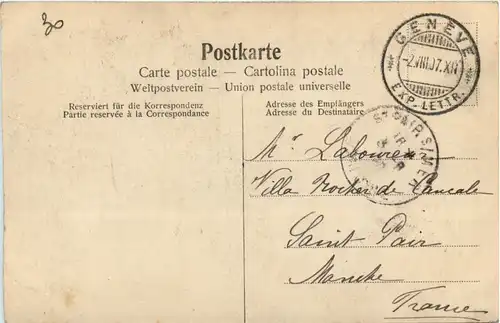 30
Postkarte
Carte postale — Cartolina postale
Weltpostverein — Union postale universelle
Reserviert für die Korrespondenz
Partie reservée à la Correspondance
Adresse des Empfängers
Adresse du Destinataire
GENÈVE
-2.VIII.07.XII
EXP. LETTR.
ST PAIR S/MER
Mr
Villa Rocher de Cancale
Saint Pair
Manche
France